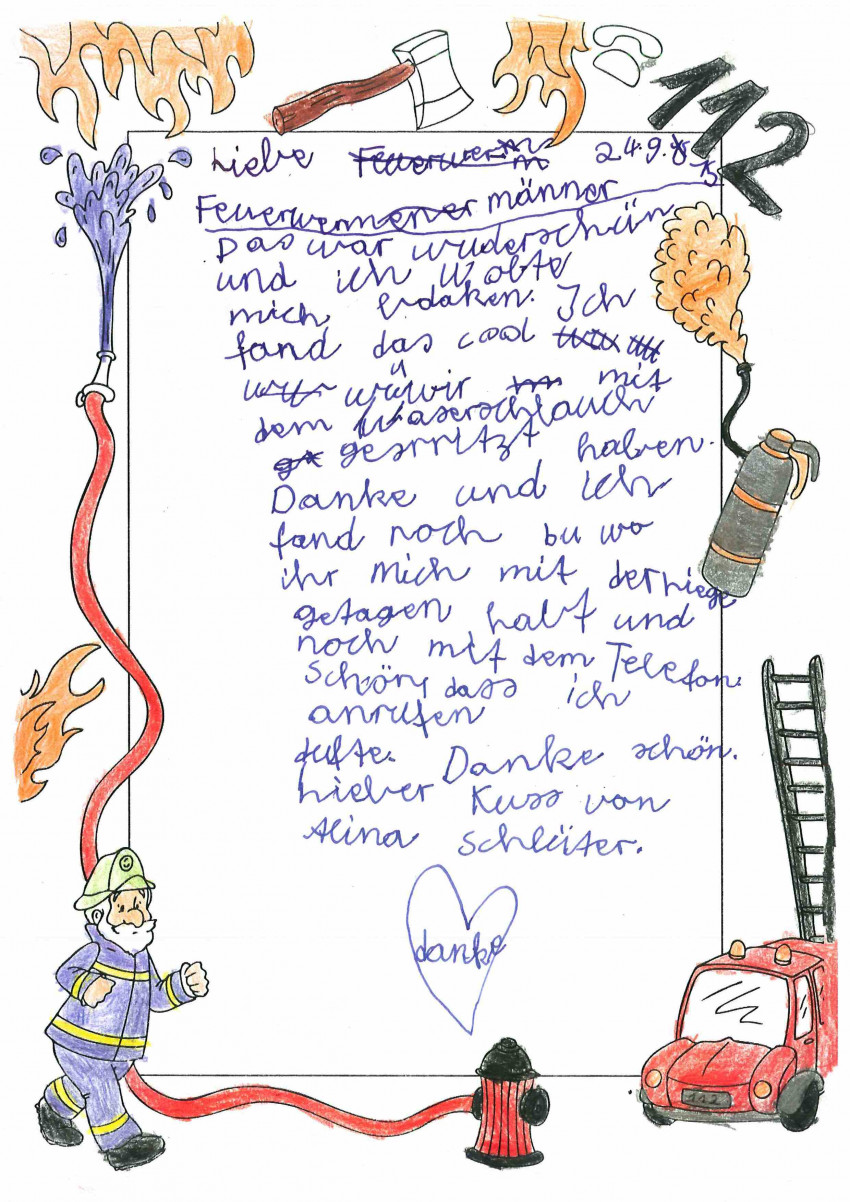 112
Liebe 24.9.15
Feuerwermener männer
Das war wuderschön
und ich wolte
mich bedaken. Ich
fand das cool
wü wir mit
dem Waserschlauch
gesrritzt haben.
Danke und ich
fand noch bu wo
ihr mich mit der Liege
getagen habt und
noch mit dem Telefon.
Schön, dass ich
anrufen
dufte. Danke schön.
Lieber Kuss von
Alina Schlüter.
danke
112